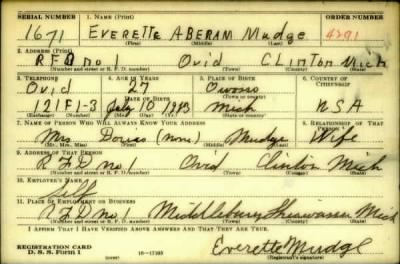 SERIAL NUMBER 1. NAME (Print) ORDER NUMBER
1671 EVERETTE ABERAM Mudge 4291
(First) (Middle) (Last)
2. ADDRESS (Print)
RFD no 1 Ovid CLINTON Mich
(Number and street or R. F. D. number) (Town) (County) (State)
3. TELEPHONE 4. AGE IN YEARS 5. PLACE OF BIRTH 6. COUNTRY OF CITIZENSHIP
Ovid 27 Owosso
DATE OF BIRTH (Town or county)
121F1-3 July 10 1913 Mich USA
(Exchange) (Number) (Mo.) (Day) (Yr.) (State or country)
7. NAME OF PERSON WHO WILL ALWAYS KNOW YOUR ADDRESS 8. RELATIONSHIP OF THAT PERSON
Mrs Doris (none) Mudge Wife
(Mr., Mrs., Miss) (First) (Middle) (Last)
9. ADDRESS OF THAT PERSON
RFD no 1 Ovid Clinton Mich
(Number and street or R. F. D. number) (Town) (County) (State)
10. EMPLOYER'S NAME
Self
11. PLACE OF EMPLOYMENT OR BUSINESS
RFD no 1 Middlebury Shiawassee Mich
(Number and street or R. F. D. number) (Town) (County) (State)
I AFFIRM THAT I HAVE VERIFIED ABOVE ANSWERS AND THAT THEY ARE TRUE.
REGISTRATION CARD
D. S. S. Form 1 16-17105 Everette Mudge
(Registrant's signature)